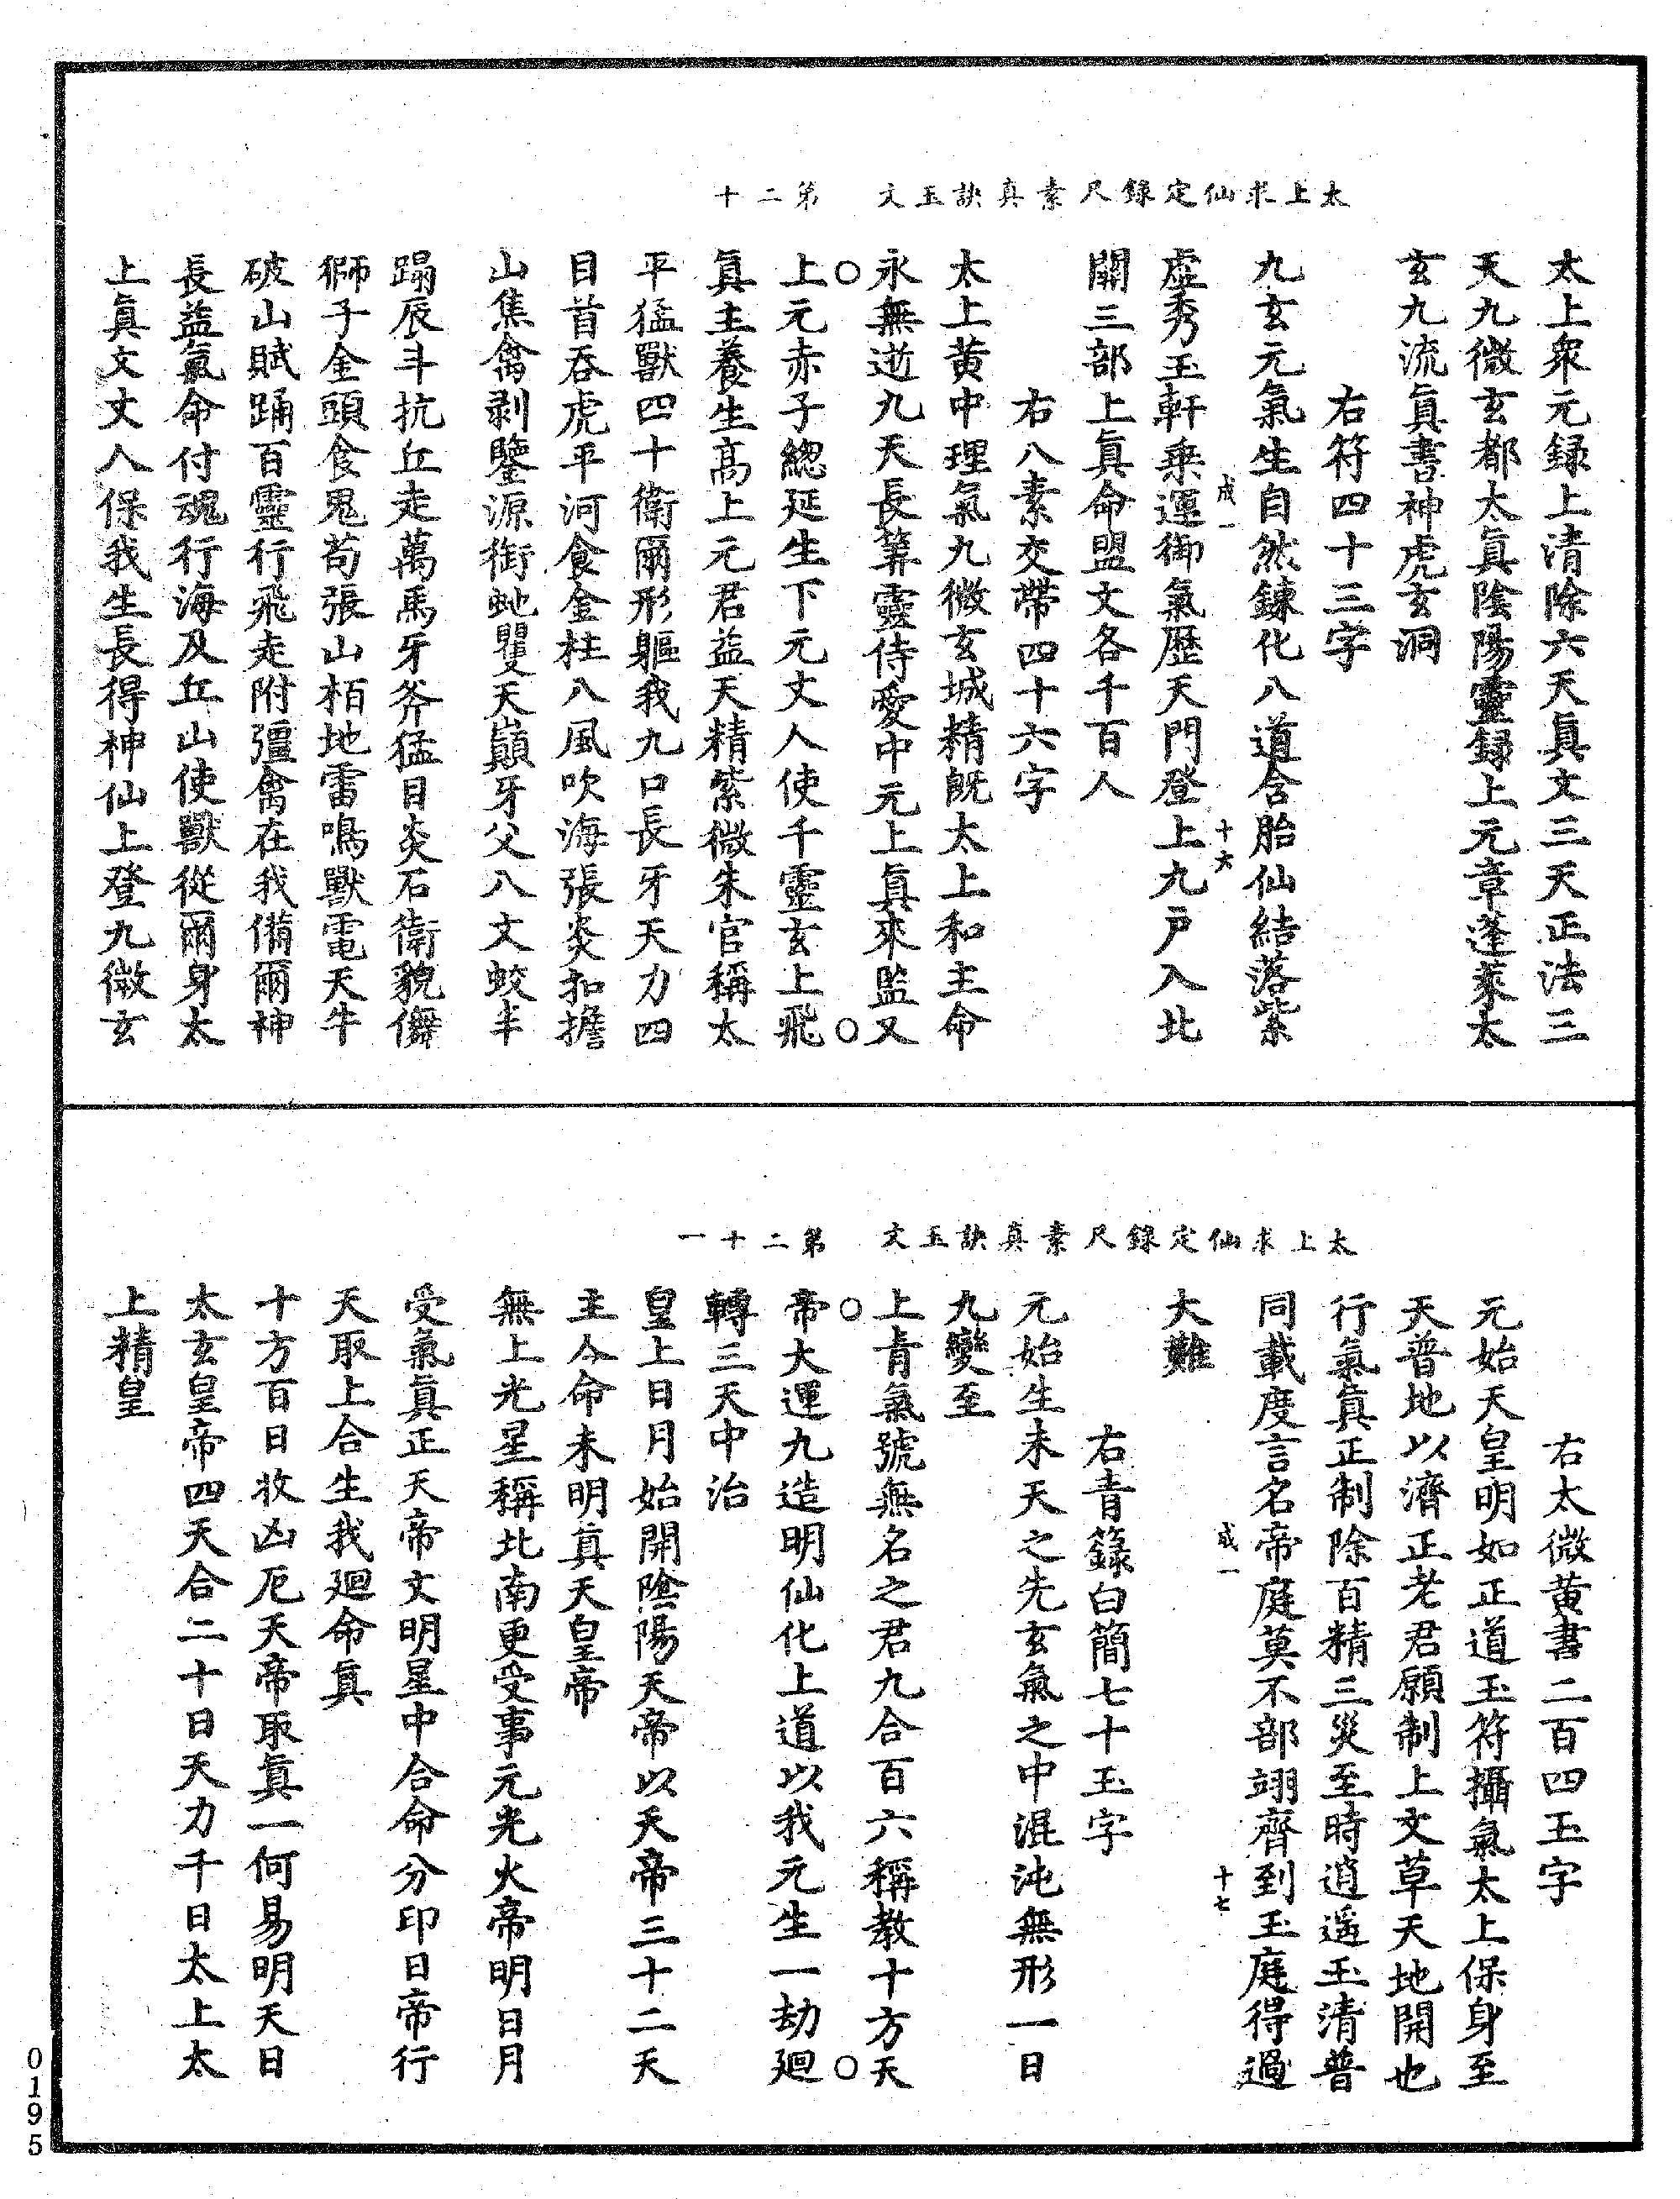 太上求仙定錄尺素真訣玉文　第二十
太上衆元録上清除六天眞文三天正法三
天九微玄都太眞陰陽靈録上元章蓬萊太
玄九流眞書神虎玄洞
右符四十三字
九玄元氣生自然鍊化八道含胎仙結落紫
成一　十六
虛秀玉軒乗運御氣歷天門登上九戸入北
開三部上眞命盟文各千百人
右八素交帶四十六字
太上黄中理氣九微玄城精旣太上和主命
永無逝九天長筭靈侍愛中元上眞來監又
上元赤子緫延生下元丈人使千靈玄上飛
眞主養生髙上元君益天精紫微朱官稱太
平猛獸四十衛爾形軀我九口長牙天力四
目首吞虎平河食金柱八風吹海張炎扣擔
山焦禽剥鑒源銜虵瞿天巔牙父八文蛟半
蹋辰斗抗丘走萬馬牙斧猛目炎石衛貌
獅子金頭食鬼苟張山栢地雷鳴獸電天牛
破山賦踊百靈行飛走附彊禽在我備爾神
長益氣命付魂行海及丘山使獸從爾身太
上眞文丈人保我生長得神仙上登九微玄
太上求仙定錄尺素真訣玉文　第二十一
右太微黄書二百四玉字
元始天皇明如正道玉符攝氣太上保身至
天普地以濟正老君願制上文草天地開也
行氣眞正制除百精三災至時逍遥玉清普
同載度言名帝庭莫不部翊齊到玉庭得過
成一　十七
大難
右青籙白簡七十玉字
元始生未天之先玄氣之中混沌無形一日
九變至
上青氣號無名之君九合百六稱教十方天
帝大運九造明仙化上道以我元生一劫廻
轉三天中治
皇上日月始開陰陽天帝以天帝三十二天
主人命未明眞天皇帝
無上光星稱北南更受事元光火帝明日月
受氣眞正天帝文明星中合命分印日帝行
天取上合生我廻命眞
十方百日收凶厄天帝取眞一何易明天日
太玄皇帝四天合二十日天力千日太上太
上精皇
0195